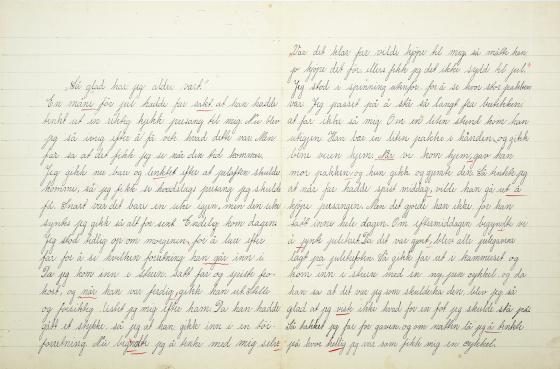 "Så glad har jeg aldri vært."
En måned før jul hadde far sagt at han hadde
tenkt ut en riktig kjekk presang til meg. Nu blev
jeg så ivrig efter å få vite hvad dette var. Men
far sa at det fikk jeg se når den tid kommer.
Jeg gikk nu bare og lenktet efter at julaften skulde
komme, så jeg fikk se hvadslags presang jeg skulde
få. Snart var det bare en uke igjen, men den uke
synes jeg gikk så alt for sent. Endelig kom dagen.
Jeg stod tidlig op om morgenen, for å lure efter
far for å se hvilken forretning han går inn i.
Da jeg kom inn i stuen, satt far og spiste fro-
kost, og når han var ferdig, gikk han ut. Stille
og forsiktig listet jeg mig efter ham. Da han hadde
gått et stykke, så jeg at han gikk inn i en for-
forretning. Nu begyndte jeg å tenke med mig selv:
"Var det klær far vilde kjøpe til meg, så måtte han
jo kjøpe det før, ellers fikk jeg det ikke sydd til jul."
Jeg stod i spenning utenfor for å se hvor stor pakken
var. Jeg passet på å stå så langt fra butikken
at far ikke så mig. Om en liten stund kom han
utigjen. Han bar en liten pakke i hånden, og gikk
bent veien hjem. Når vi kom hjem, gav han
mor pakken og hun gikk og gjemte den. Så tenkte jeg
at når far hadde spist middag, vilde han gå ut å
kjøpe presangen. Men det gjorde han ikke, for han
satt inne hele dagen. Om eftermiddagen begyndte vi
å pynte juletreet. Da det var gjort, blev alle julegavene
lagt på julebordet. Så gikk far ut i kammerset og
kom inn i stuen med en ny, pen sykkel, og da
han sa at det var jeg som skulde ha den, blev jeg så
glad at jeg visste ikke hvad for en fot jeg skulde stå på.
Så takket jeg far for gaven og om natten lå jeg å tenkte
på hvor heldig jeg var som fikk mig en sykkel.